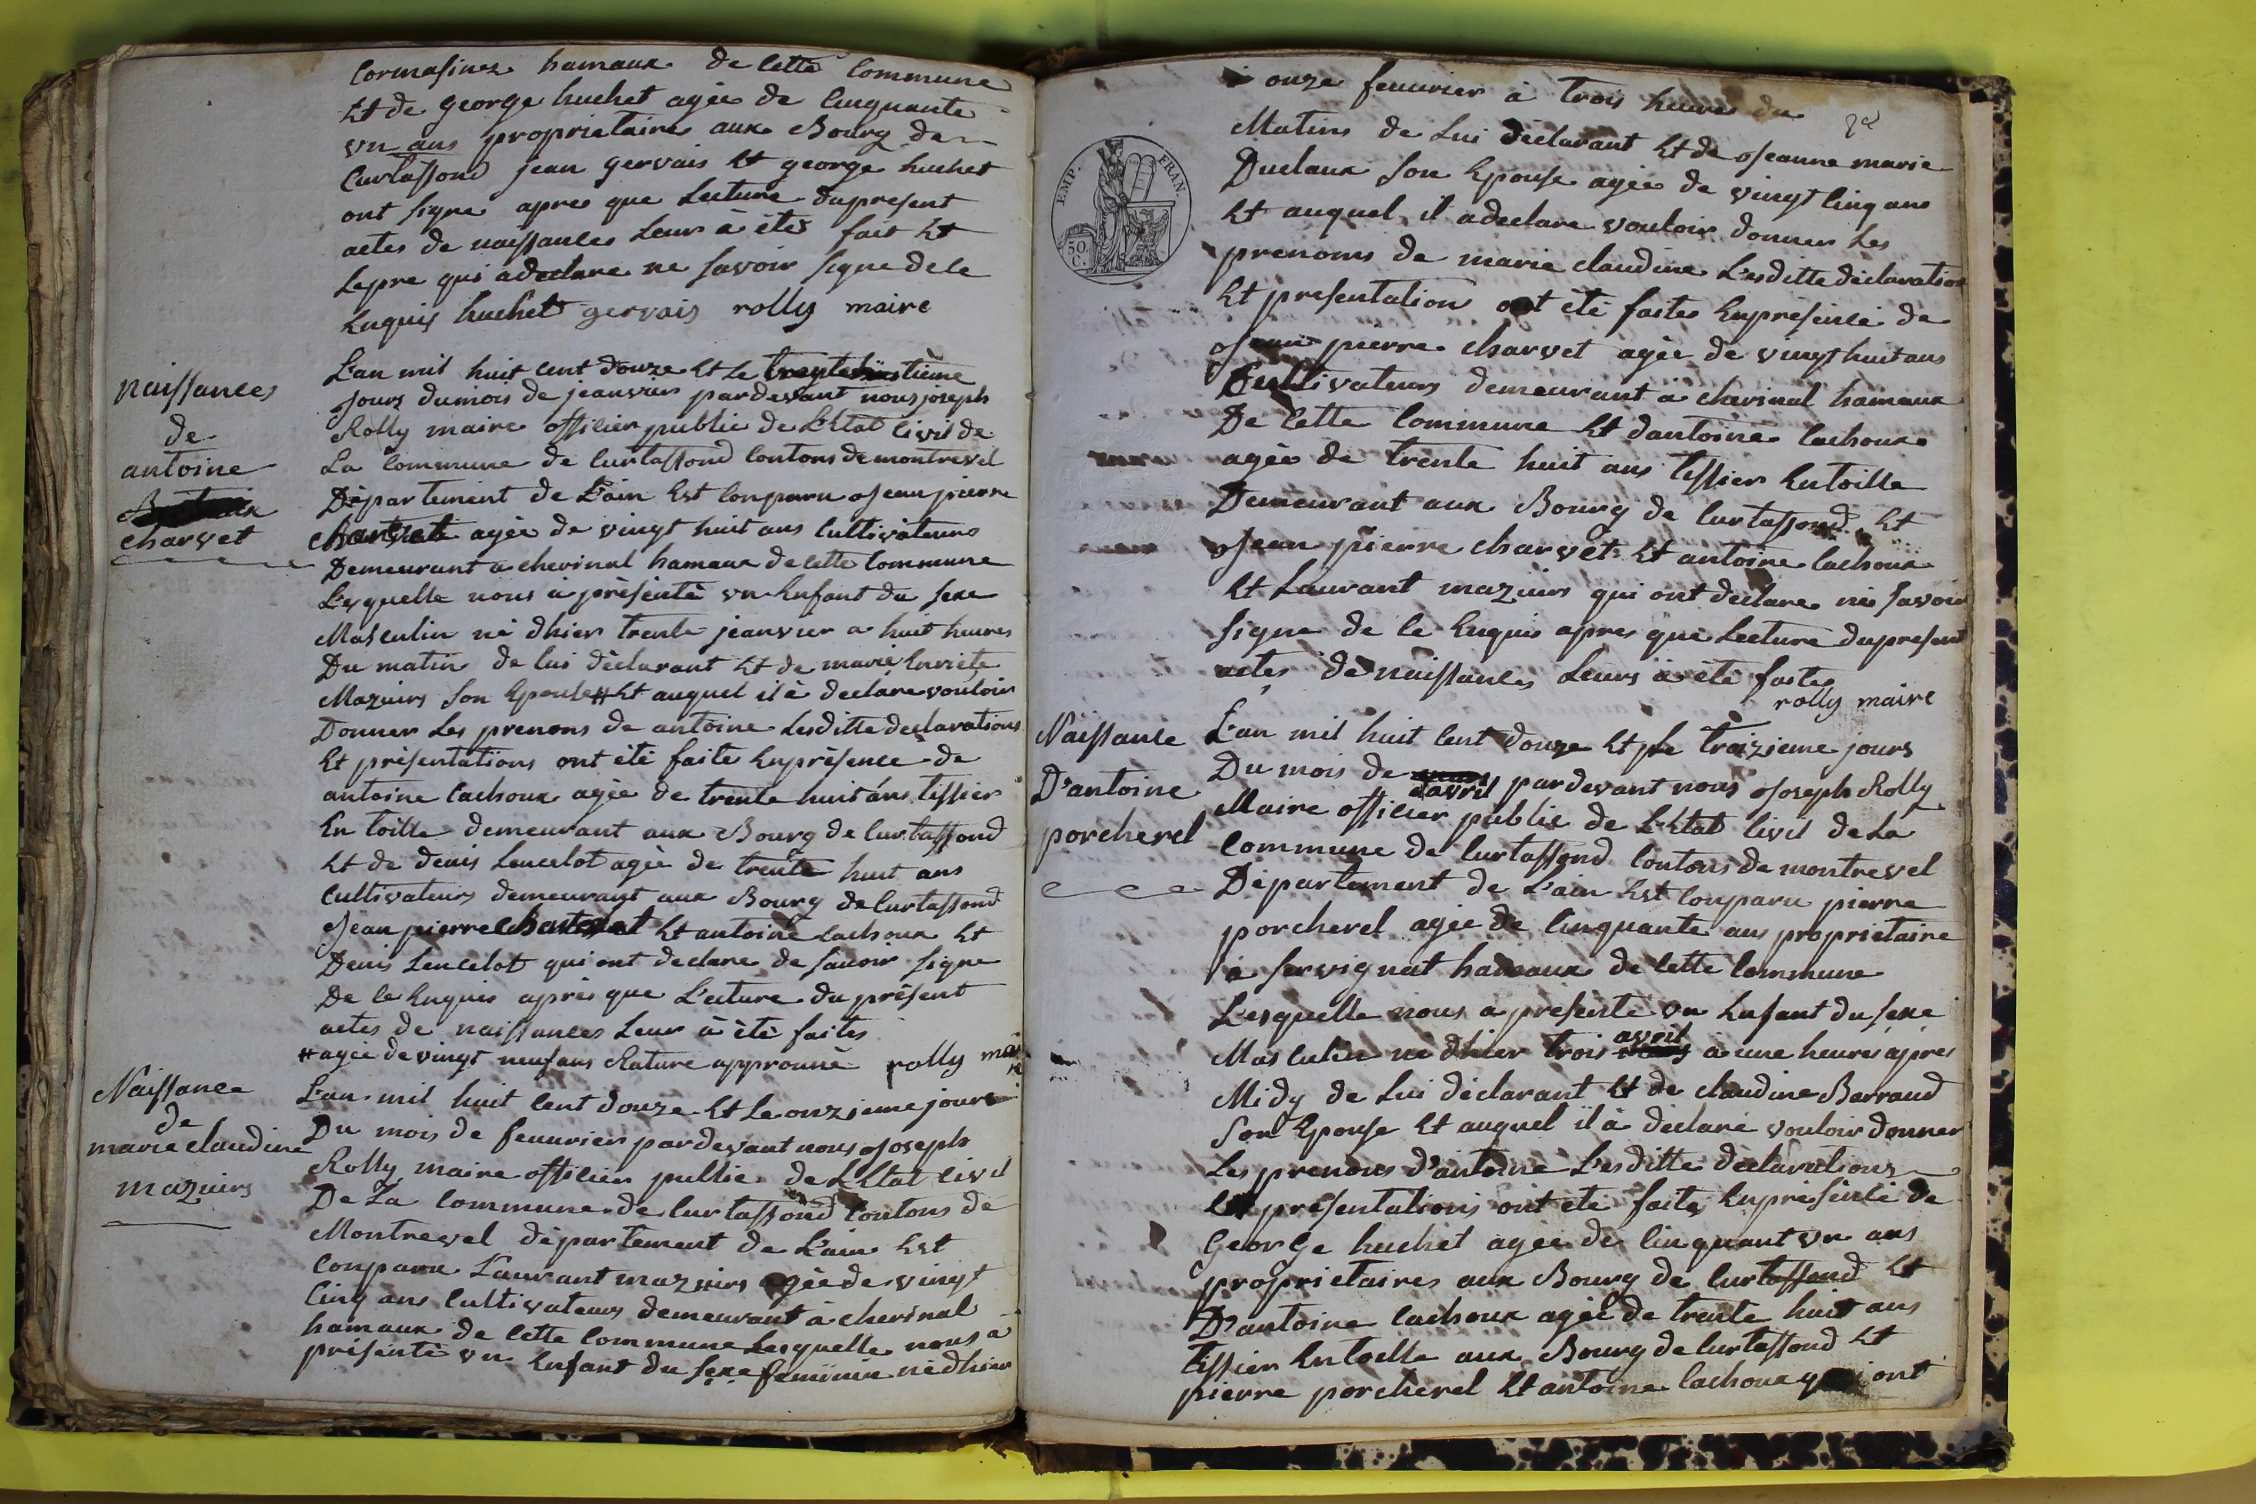 Cormasinez hamaux de cette Commune
Et de george huchet agée de Cinquante
vn ans proprietaires aux Bourg de
Curtassond jean gervais Et george huchet
ont signe apres que Lecture dupresent
actes de naissances Leurs à étés fait Et
Lepre qui adeclare ne savoir signe dele
Enquis huchet gervais rolly maire
naissances
de
antoine
charvet
L'an mil huit cent douze Et Le trente unstième
Jours dumois de jeanvier pardevant nous joseph
Rolly maire officier public de L'Etat Civil de
La Commune de Curtassond Contons de montrevel
Département de L'ain Est Conparu Jean pierre
charvet agée de vingt huit ans Cultivateurs
Demeurant a chevinal hamaux de cette Commune
Lesquelle nous à présenté vn Enfant du sexe
Masculin né dhier trente jeanvier a huit heures
Du matin de lui déclarant Et de marie Enriete
Mazuirs son Epouse # Et auquel il à declare vouloir
Donner Les prenons de antoine Lesditte declarations
Et présentations ont été faite Enprésence de
antoine Cachoux agée de trente huit ans tissier
En toille demeurant aux Bourg de Curtassond
Et de denis Lencelot agée de trente huit ans
Cultivateurs demeurant aux Bourg de Curtassond
Jean pierre charvet Et antoine Cachoux Et
Denis Lencelot qui ont declare de savoir signe
De le Enquis après que L'ecture du présent
actes de naissances Leur à été faites
# agée de vingt neuf ans Rature approuvé rolly maire
Naissance
de
marie claudine
mazuirs
L'an mil huit Cent douze Et Le onzieme jours
Du mois de feuvrier pardevant nous Joseph
Rolly maire officier public de L'Etat Civil
De La Commune de Curtassond Contons de
Montrevel département de L'ain Est
Conparu Laurant mazuirs agée de vingt
Cinq ans Cultivateurs demeurant à chevinal
hamaux de cette Commune Lesquelle nous a
présenté vn Enfant du sexe féminin nédhier
EMP. FRAN.
50 C.
onze feuvrier à trois heures du
Matins de Lui déclarant Et de Jeanne marie
Duclaux son Epouse agée de vingt Cinq ans
Et auquel il adeclare vouloir donner Les
prenoms de marie claudine L'esditte déclaration
Et presentation ont été faites Enprésence de
Jean pierre charvet agée de vingt huit ans
Cultivateurs demeurant à chevinal hamaux
De Cette Commune Et dantoine Cachoux
agée de trente huit ans tissier Entoille
Demeurant aux Bourg de Curtassond Et
Jean pierre charvet Et antoine Cachoux
Et Laurant mazuirs qui ont declare ne savoir
signe de le Enquis apres que Lecture dupresent
actes de naissances Leurs à été faites
rolly maire
Naissance
D'antoine
porcherel
L'an mil huit Cent douze Et le troizieme jours
Du mois de davril pardevant nous Joseph Rolly
Maire officier public de L'Etat Civil de La
Commune de Curtassond Contons de montrevel
Département de L'ain Est Conparu pierre
porcherel agée de Cinquante ans proprietaire
à servignat hamaux de Cette Commune
Lesquelle nous a presenté vn Enfant du sexe
Masculin né dhier trois avril à une heures apres
Midy de Lui déclarant Et de claudine Barraud
Son Epouse Et auquel il à déclaré vouloir donner
Les prenons d'antoine L'esditte déclarations
Et présentations ont été faites Enprésence de
George huchet agée de Cinquant vn ans
proprietaires aux Bourg de Curtassond Et
D'antoine Cachoux agée de trente huit ans
tissier Entoille aux Bourg de Curtassond Et
pierre porcherel Et antoine Cachoux qui ont